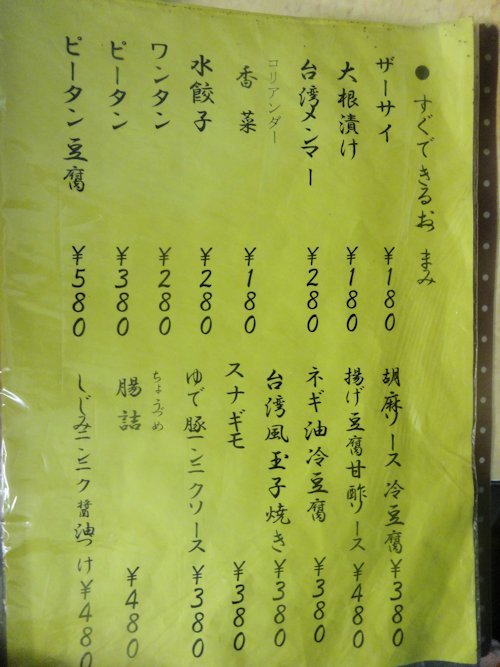 ●すぐできるお まみ
ザーサイ ¥180
大根漬け ¥180
台湾メンマー ¥280
コリアンダー
香菜 ¥180
水餃子 ¥280
ワンタン ¥280
ピータン ¥380
ピータン豆腐 ¥580
胡麻ソース冷豆腐 ¥380
揚げ豆腐甘酢ソース ¥480
ネギ油冷豆腐 ¥380
台湾風玉子焼き ¥380
スナギモ ¥380
ゆで豚ニンニクソース ¥380
ちょうづめ
腸詰 ¥480
しじみニンニク醤油つけ ¥480